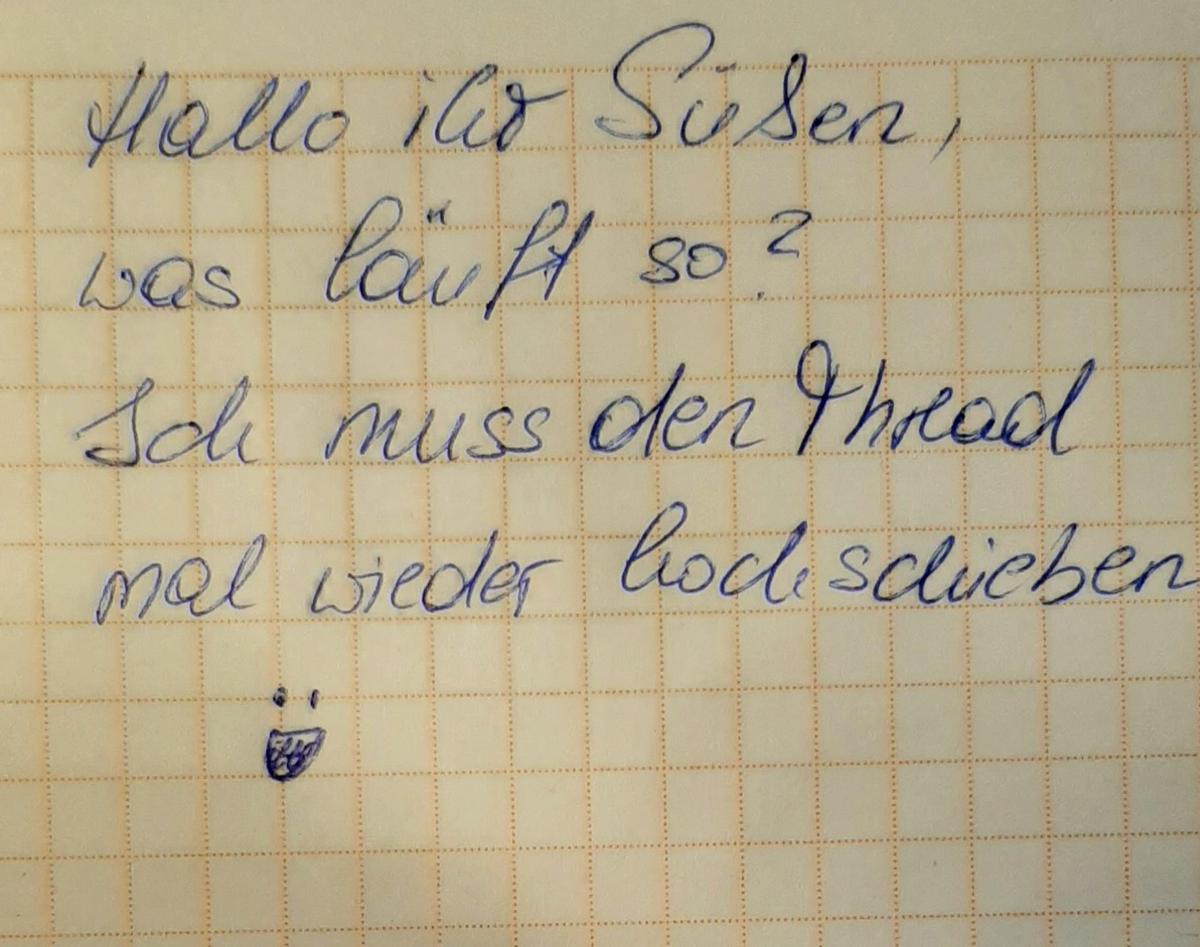 Hallo ihr Süßen,
was läuft so?
Ich muss den Thread
mal wieder hochschieben